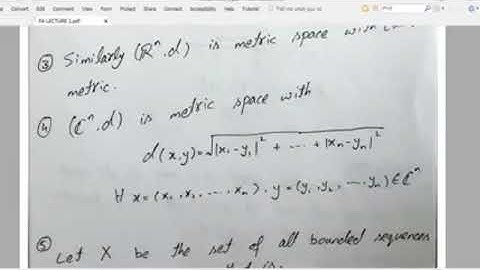 Home Insert Comment
View Form Protect Connect Share Accessibility Help Tell me what you want to do
FA LECTURE 2.pdf
③ Similarly (ℝⁿ, d) is metric space with
metric.
④ (ℂⁿ, d) is metric space with
d(x,y) = √|x₁-y₁|² + ... + |xₙ-yₙ|²
∀ x = (x₁, x₂, ..., xₙ), y = (y₁, y₂, ..., yₙ) ∈ ℂⁿ
⑤
Let X be the set of all bounded sequences